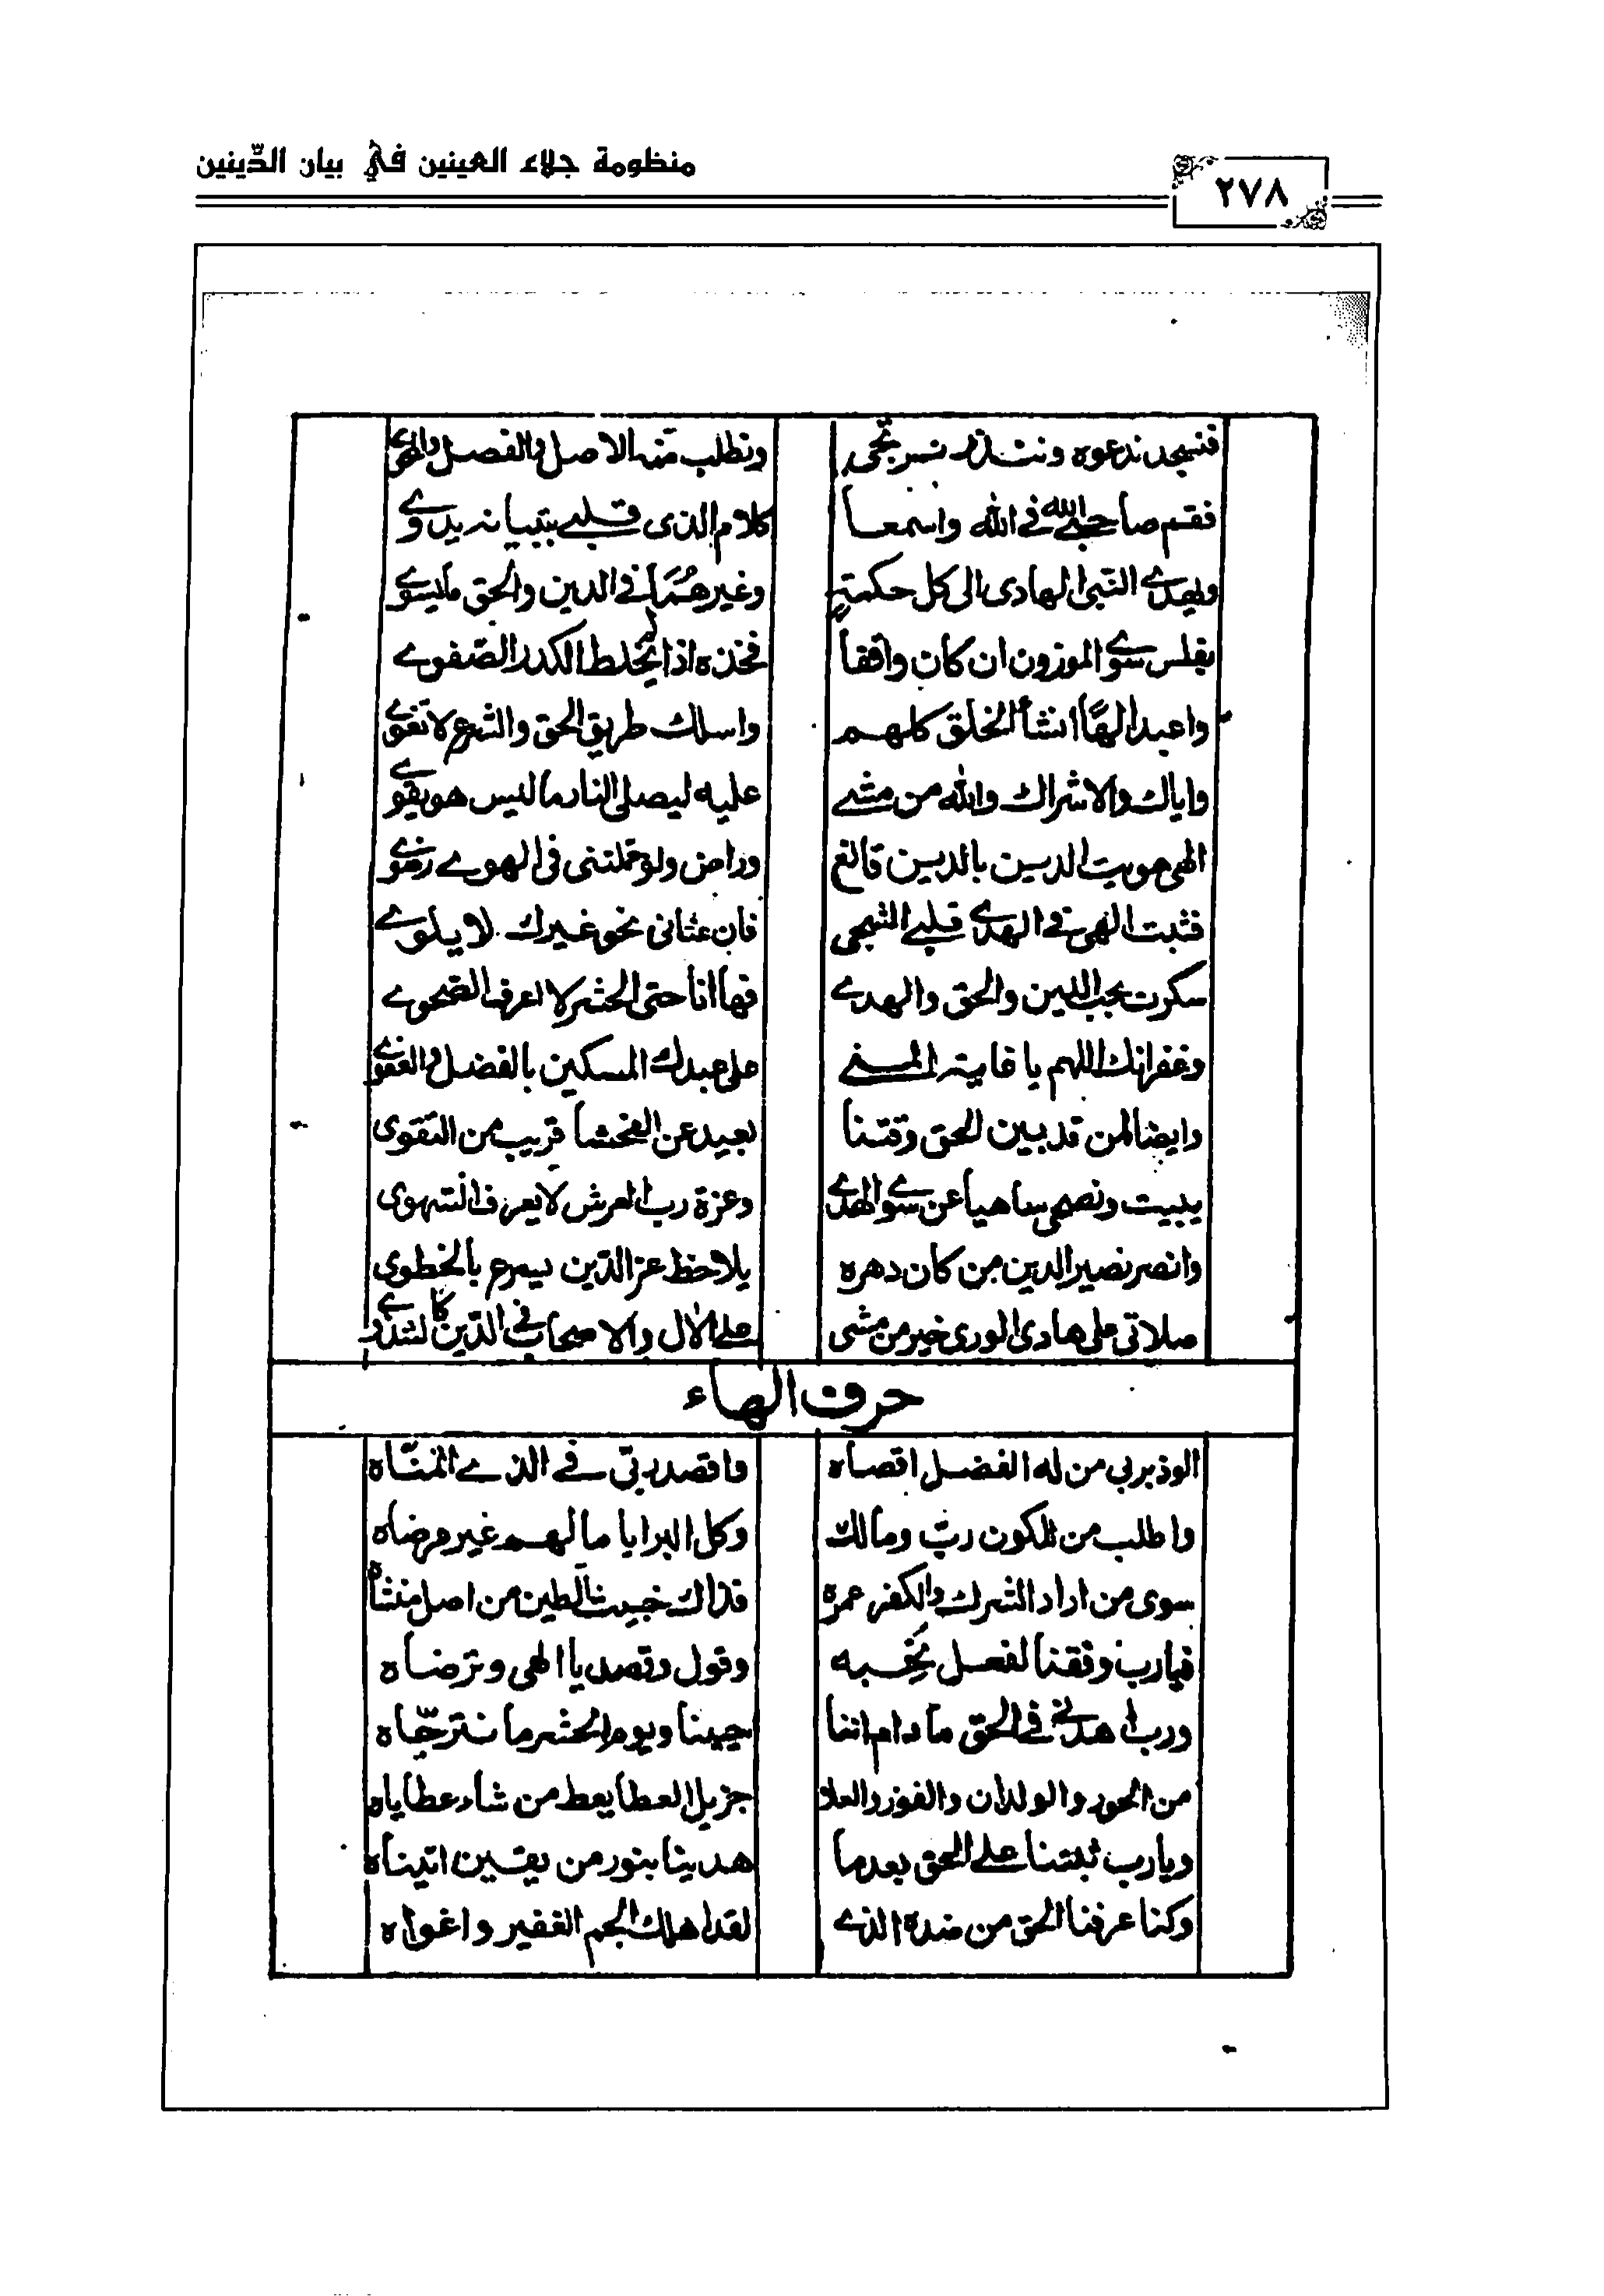 منظومة جلاء العينين في بيان الدّينين
٢٧٨
ندعوه ونطلب منه الاصل والفصل
فقم صاحبي لله في الله واسمعا كلام الذي قلبي
النبي الهادي الى كل حكمته وغيرهما في الدين والحق مايسوي
سوے الموزون ان كان واقفا فخذه اذا لم يخلط الكدر الصفوے
واعبد الهًا انشأ الخلق كلهم واسلك طريق الحق والشرع لا تغوے
واياك والاشراك والله من مشے عليه ليصلى النار ما ليس هو يقوے
الهي هويت الدين بالدين قانع وراض ولو في الهوے رضوے
فثبت الهي في الهدے قلبي الشجي فان عناني نحو غيرك لا يلوے
سكرت بحب الدين والحق والهدے فها انا حتى الحشر لا اعرف الصحوے
وغفرانك اللهم يا غاية المنے على عبدك المسكين بالفضل والعفوے
وايضا لمن قد بين الحق وقتنا بعيد عن الفحشا قريب من التقوى
يبيت ونصحي ساهيا عن سوے الهدے وعزة رب العرش لا يعرف الشهوى
وانصر نصير الدين من كان دهره يلاحظ عز الدين يسرع بالخطوى
صلاتي على هادي الورى خير من مشى على الال والاصحاب في الدين كالشذوے
حرف الهاء
الوذ بربي من له الفضل اقصاه واقصد ربّي في الذے اتمنّاه
واطلب من للكون ربّ ومالك وكل البرايا ما لهم غير مرضاه
سوى من اراد الشرك والكفر عمره فذاك خبيث الطين من اصل منشأه
فيارب وفقنا لفعل تحبه وقول وقصد يا الهي وترضاه
ورب اهدني في الحق ما دام اننا حيينا ويوم الحشر ما نترجّاه
من الحور والولدان والفوز والعلا جزيل العطا يعط من شاء عطاياه
ويارب ثبتنا على الحق بعدما هدينا بنور من يقين اتيناه
وكنا عرفنا الحق من ضده الذے لقد اهلك الجم الغفير واغواه